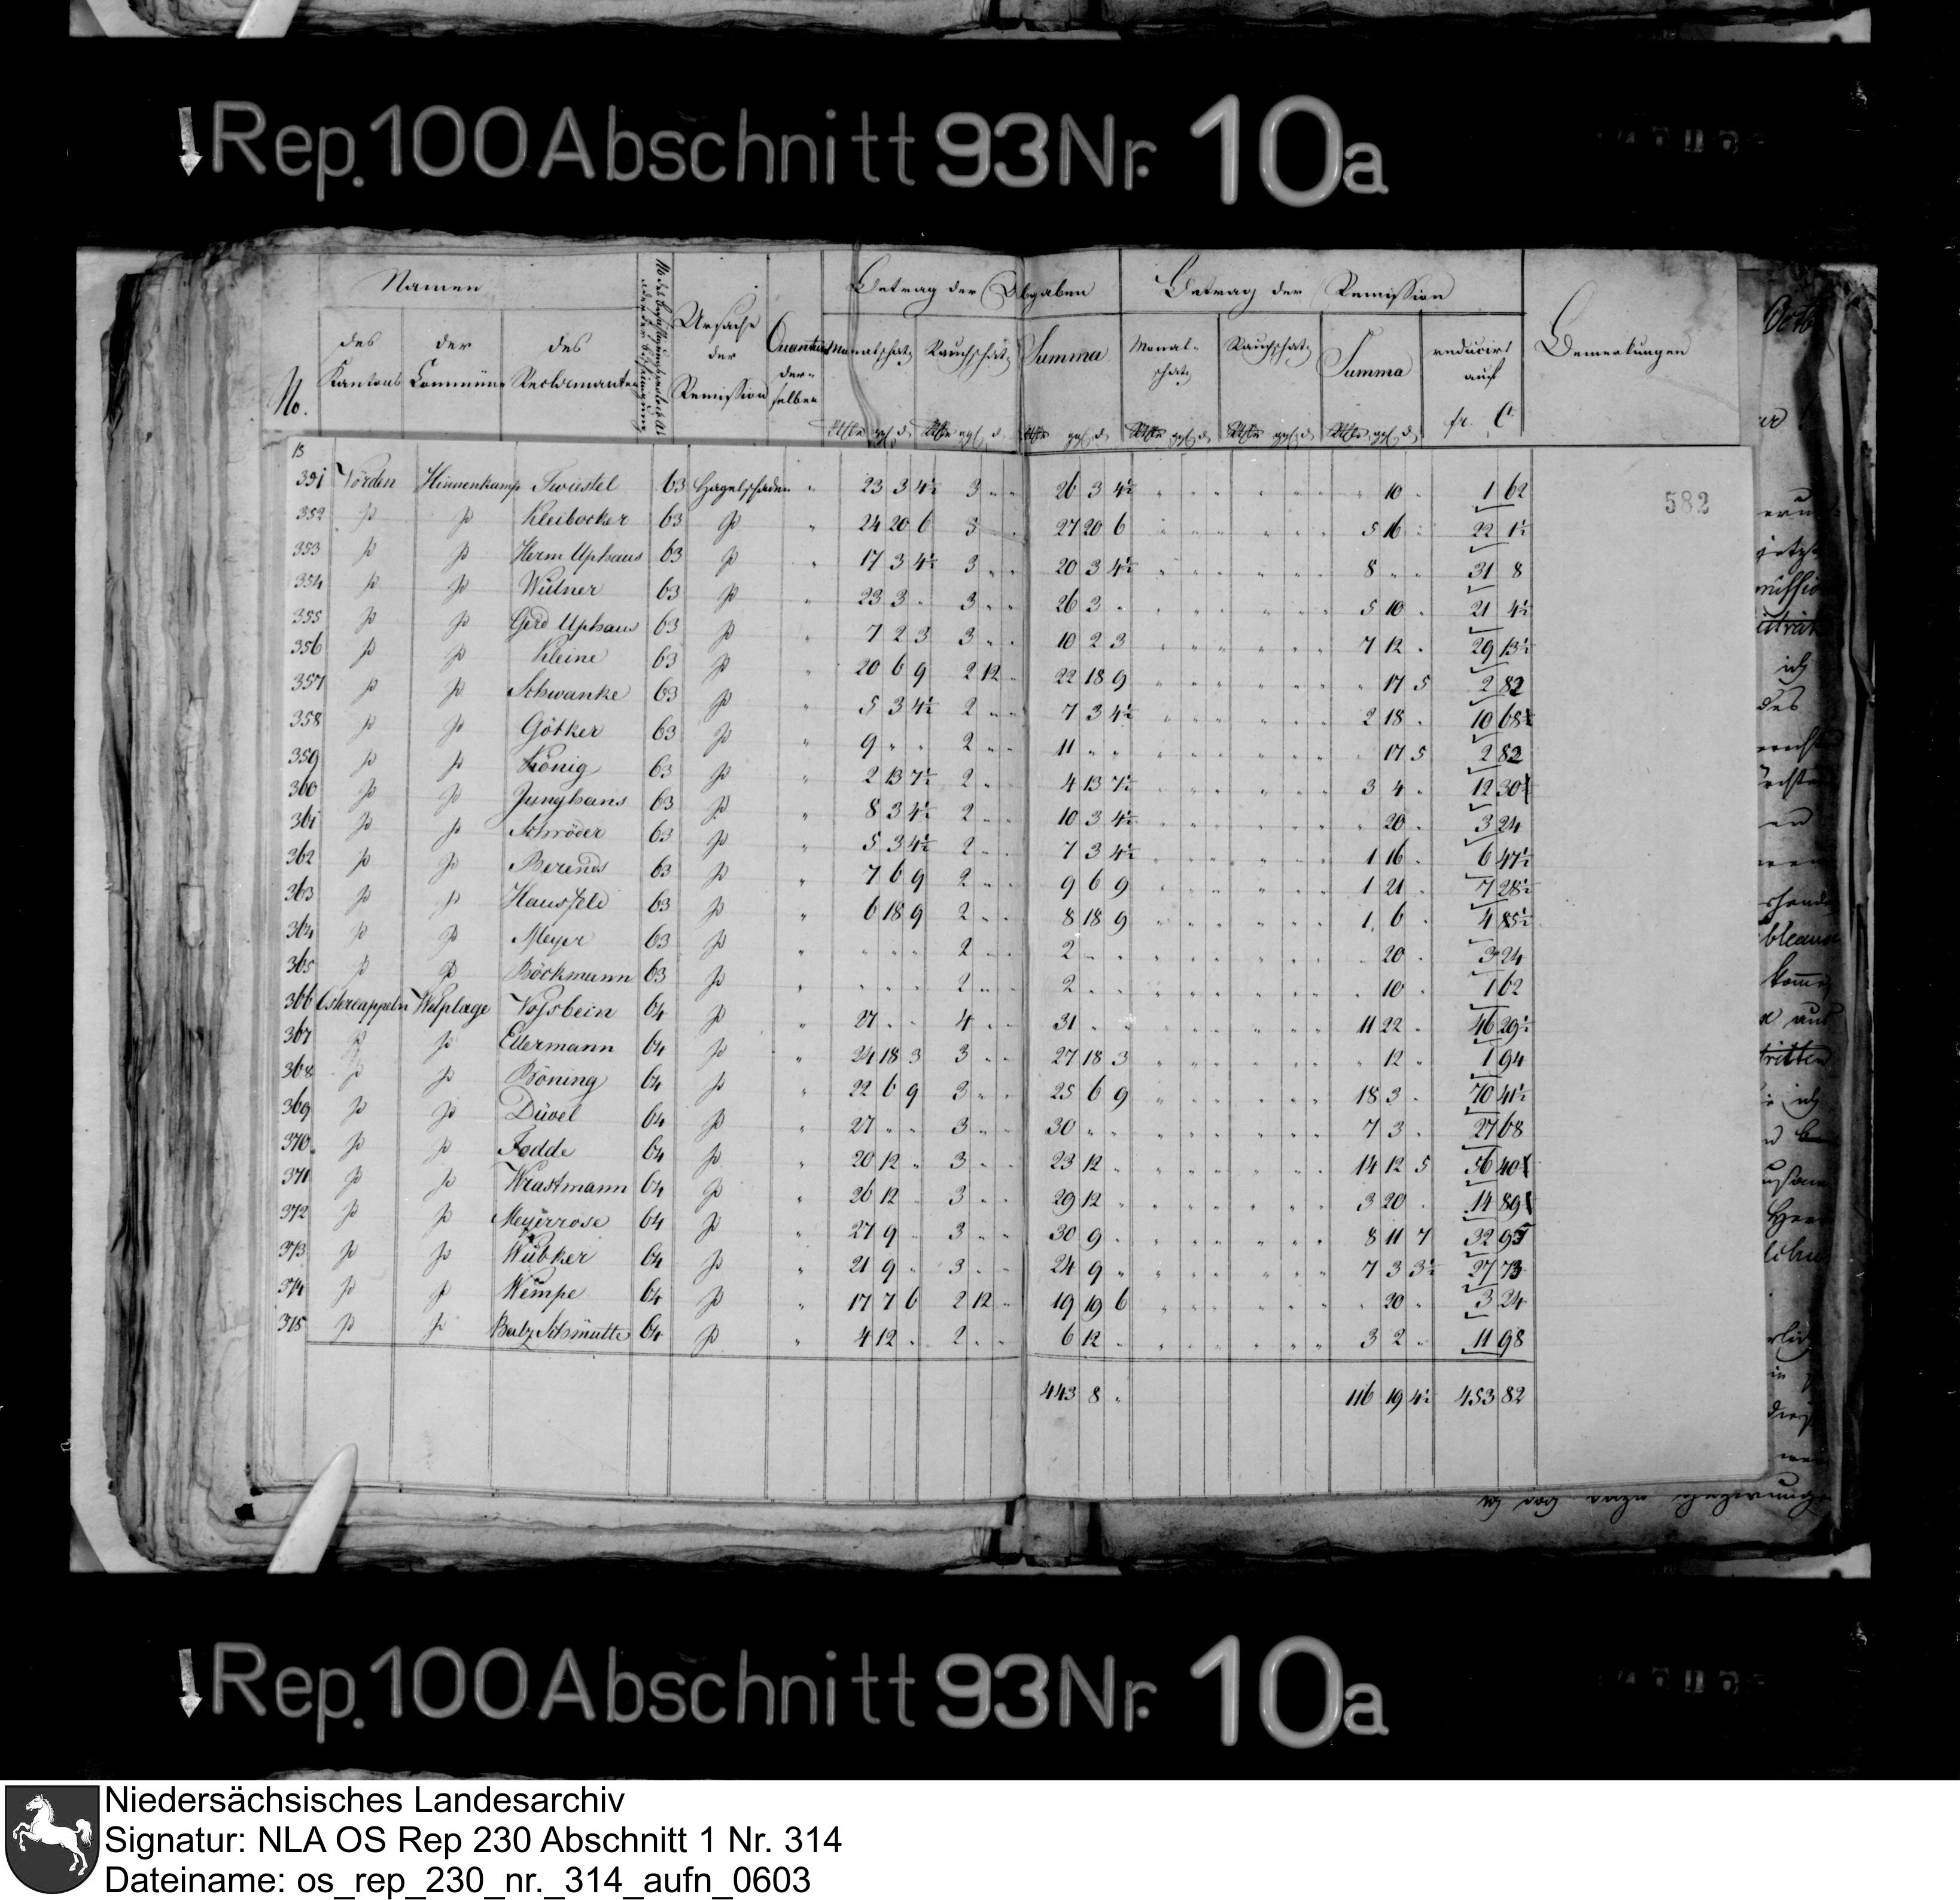 Rep. 100 Abschnitt 93 Nr. 10a
Namen
Betrag der Abgaben
Betrag der Remission
No.
des Kantons
der Commüne
des Reclamanten
Ursache der Remission
Quantum derselben
Monatschatz
Rauchschatz
Summa
Monatschatz
Rauchschatz
Summa
reducirt auf
fr. C
Bemerkungen
13
582
351 Vörden Hinnenkamp Twiestel 63 Hagelschaden " 23 3 4½ 3 " " 26 3 4½ " 10 " 1 62
352 p p Kleibocker 63 p " 24 20 6 3 " 27 20 6 5 16 " 22 1½
353 p p Herm Uphaus 63 p " 17 3 4½ 3 " " 20 3 4½ 8 " " 31 8
354 p p Wülner 63 p " 23 3 " 3 " " 26 3 " 5 10 " 21 4½
355 p p Gerd Uphaus 63 p " 7 2 3 3 " " 10 2 3 7 12 " 29 13½
356 p p Kleine 63 p " 20 6 9 2 12 " 22 18 9 " 17 5 2 82
357 p p Schwanke 63 p " 5 3 4½ 2 " " 7 3 4½ 2 18 " 10 68
358 p p Götker 63 p " 9 " " 2 " " 11 " " " 17 5 2 82
359 p p König 63 p " 2 13 7½ 2 " " 4 13 7½ 3 4 " 12 30
360 p p Junghans 63 p " 8 3 4½ 2 " " 10 3 4½ " 20 " 3 24
361 p p Schröder 63 p " 5 3 4½ 2 " " 7 3 4½ 1 16 " 6 47½
362 p p Berends 63 p " 7 6 9 2 " " 9 6 9 1 21 " 7 28½
363 p p Hausfeld 63 p " 6 18 9 2 " " 8 18 9 1 6 " 4 85½
364 p p Meyer 63 p " " " " 2 " " 2 " " " 20 " 3 24
365 p p Böckmann 63 p " " " " 2 " " 2 " " " 10 " 1 62
366 Ostercappeln Welplage Vossbein 64 p " 27 " " 4 " " 31 " " 11 22 " 46 29½
367 p p Ellermann 64 p " 24 18 3 3 " " 27 18 3 " 12 " 1 94
368 p p Böning 64 p " 22 6 9 3 " " 25 6 9 18 3 " 70 41½
369 p p Düvel 64 p " 27 " " 3 " " 30 " " 7 3 " 27 68
370 p p Fodde 64 p " 20 12 " 3 " " 23 12 " 14 12 5 56 40
371 p p Wrastmann 64 p " 26 12 " 3 " " 29 12 " 3 20 " 14 89
372 p p Meyerrose 64 p " 27 9 " 3 " " 30 9 " 8 11 7 32 95
373 p p Wübker 64 p " 21 9 " 3 " " 24 9 " 7 3 3½ 27 73
374 p p Wempe 64 p " 17 7 6 2 12 " 19 19 6 " 20 " 3 24
375 p p Balz Schmutte 64 p " 4 12 " 2 " " 6 12 " 3 2 " 11 98
443 8 " 116 19 4½ 453 82
Rep. 100 Abschnitt 93 Nr. 10a
Niedersächsisches Landesarchiv
Signatur: NLA OS Rep 230 Abschnitt 1 Nr. 314
Dateiname: os_rep_230_nr._314_aufn_0603